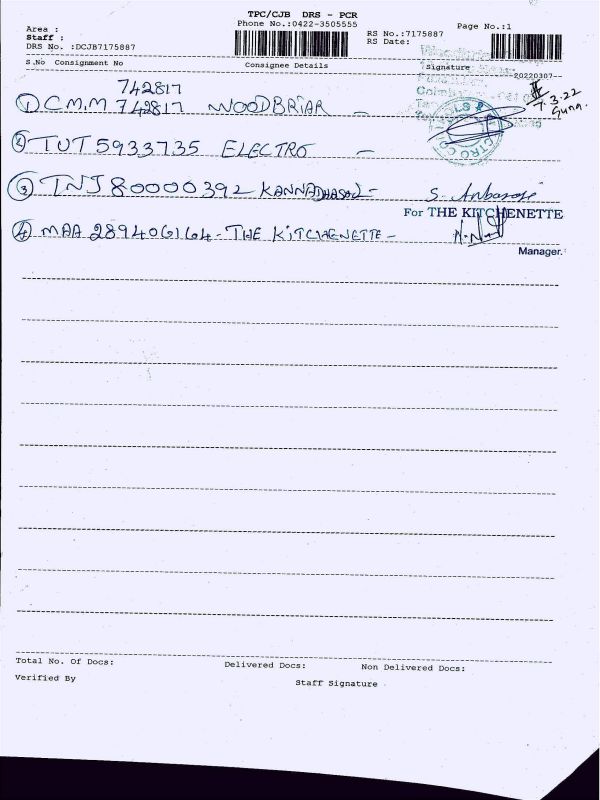 TPC/CJB DRS - PCR
Phone No.:0422-3505555
Page No.:1
Area :
Staff :
RS No.:7175887
DRS No. :DCJB7175887
RS Date:
S.No Consignment No Consignee Details Signature
20220307
742817
① CMM 742817 WOODBRIAR -
7.3.22
② TUT5933735 ELECTRO -
③ TNJ80000392 KANNADHASAN - S. Anbarasi
For THE KITCHENETTE
④ MAA 289406164 - THE KITCHENETTE -
Manager.
Total No. Of Docs: Delivered Docs: Non Delivered Docs:
Verified By Staff Signature